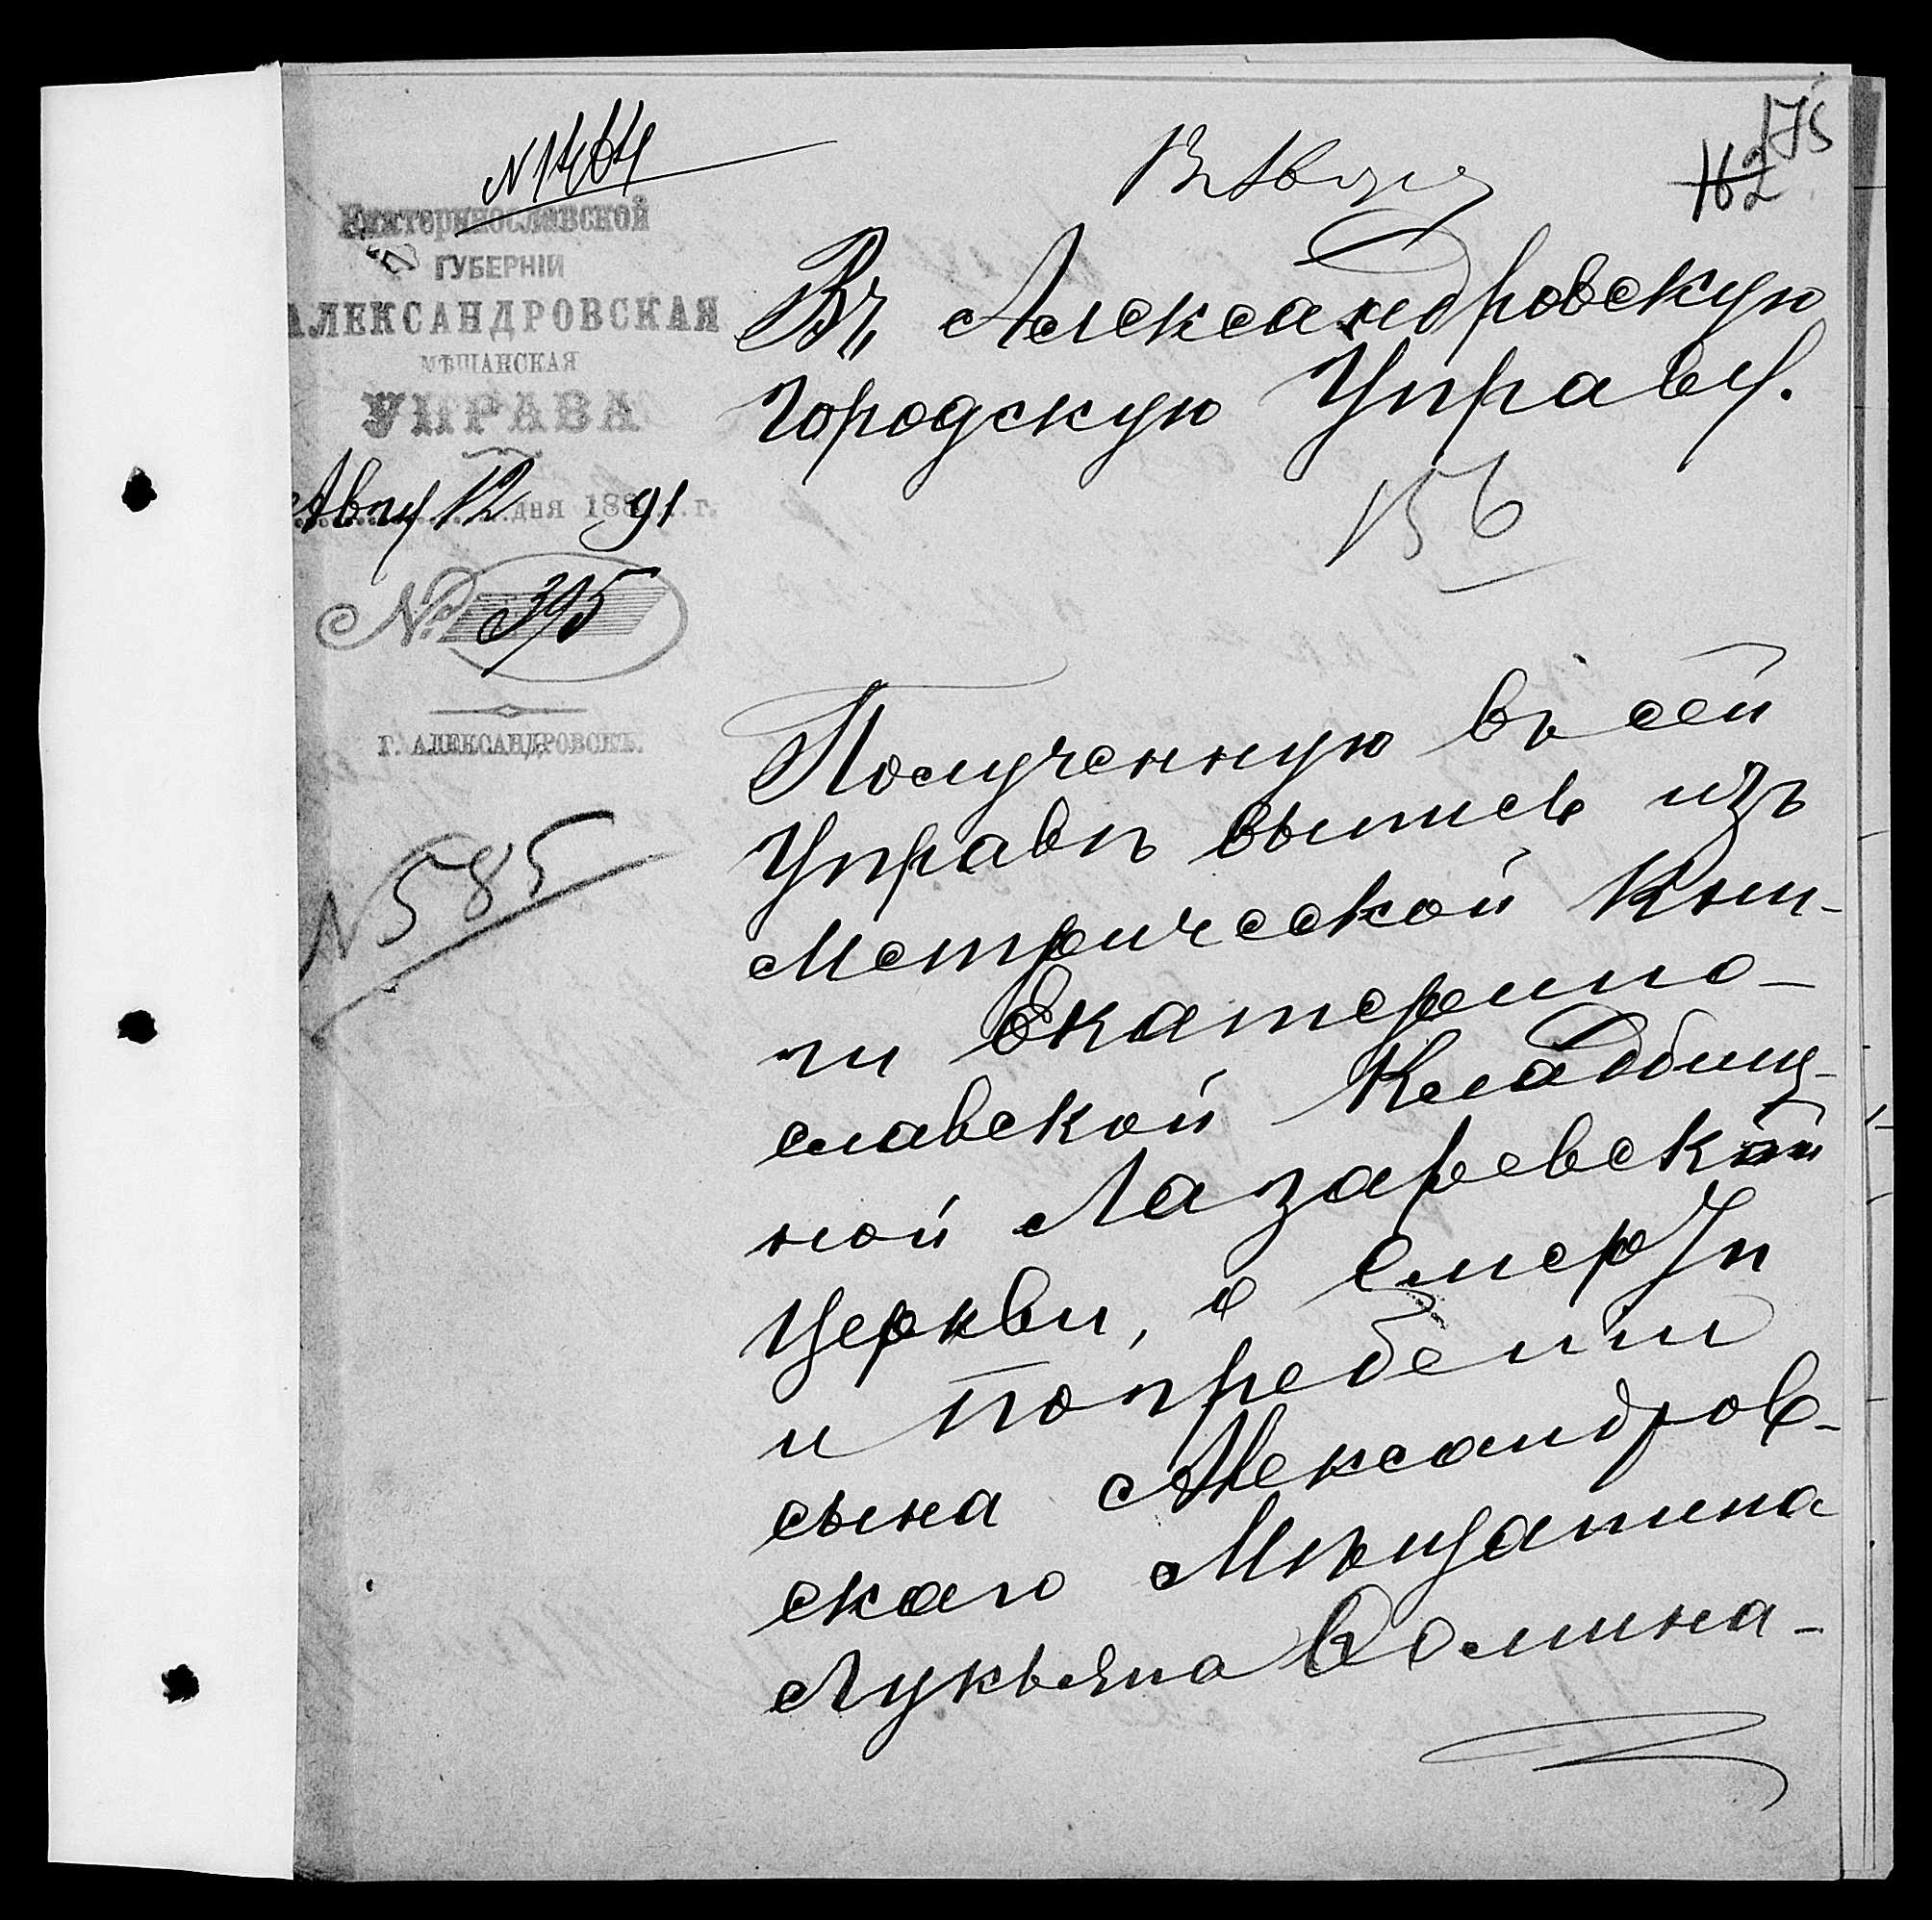 N 1464
12 Авгу
175
162
Екатеринославской
ГУБЕРНІИ
АЛЕКСАНДРОВСКАЯ
МѢЩАНСКАЯ
УПРАВА
Авгу 12 дня 1891 г.
№ 395
Г. АЛЕКСАНДРОВСКЪ.
N 585
Въ Александровскую
Городскую Управу.
156
Полученную въ сей
Управѣ выпись изъ
Метрической Кни-
ги Екатерино-
славской Кладбищ-
ной Лазаревской
Церкви, о смерти
и погребении
сына Александров-
скаго Мѣщанина
Лукьяна Волина-